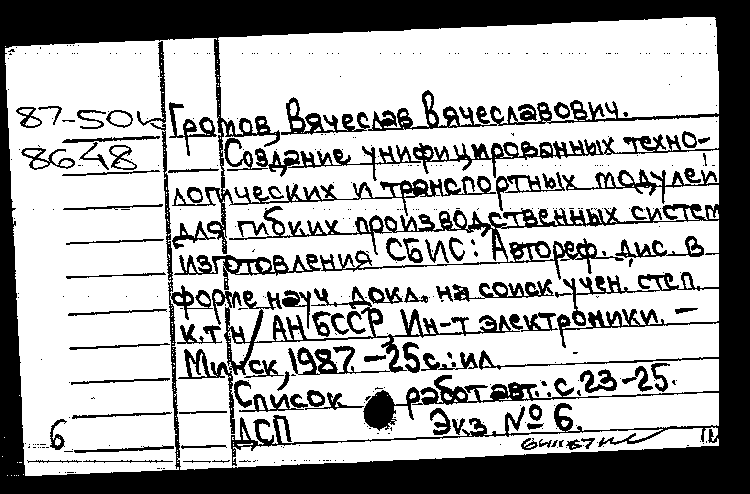 87-50к Громов, Вячеслав Вячеславович.
8648 Создание унифицированных техно-
логических и транспортных модулей
для гибких производственных систем
изготовления СБИС: Автореф. дис. в
форме науч. докл. на соиск. учен. степ.
к.т.н / АН БССР, Ин-т электроники. —
Минск, 1987. — 25 с.: ил.
Список работ авт.: с. 23-25.
6 ДСП Экз. № 6.